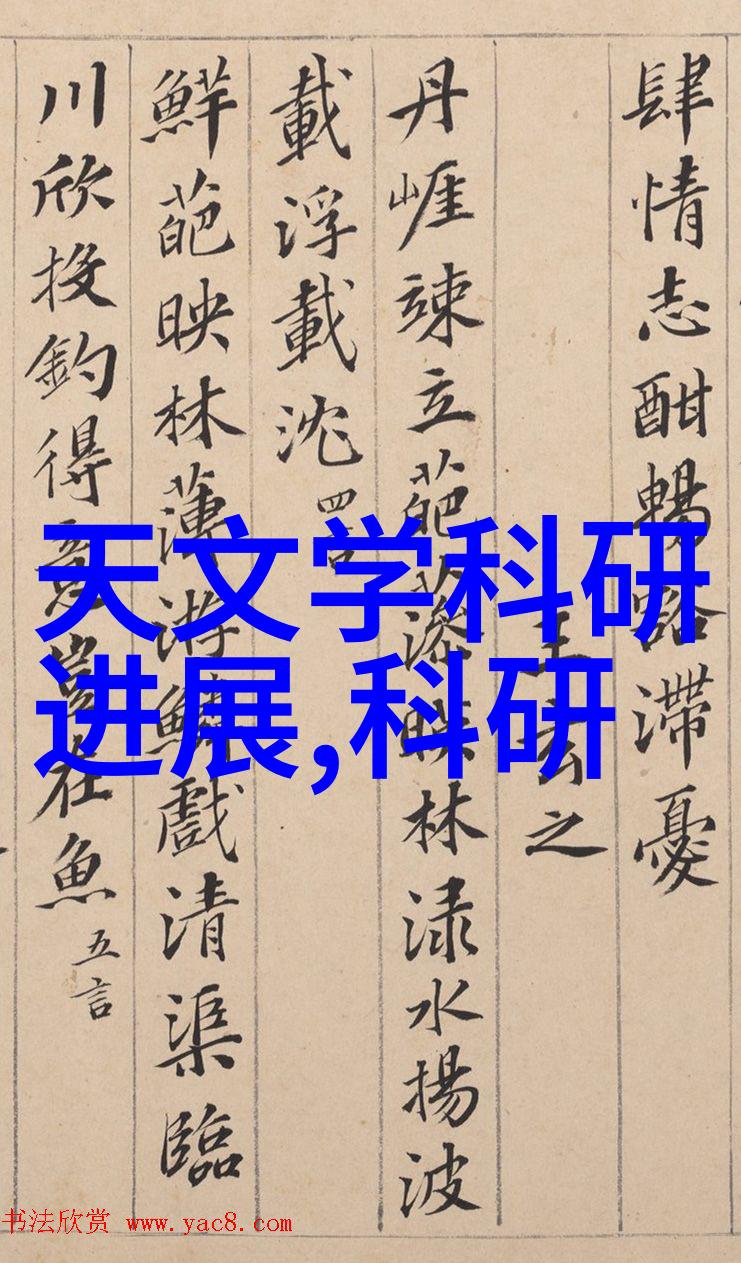 肆情志酣暢豁滯憂
王玄之
丹崕竦立葩藻暎林渌水揚波
載浮載沈 四言
鮮葩映林薄游鱗戲清渠臨
川欣投釣得意豈在魚 五言
天文学科研
进展,科研
书法欣赏 www.yac8.com